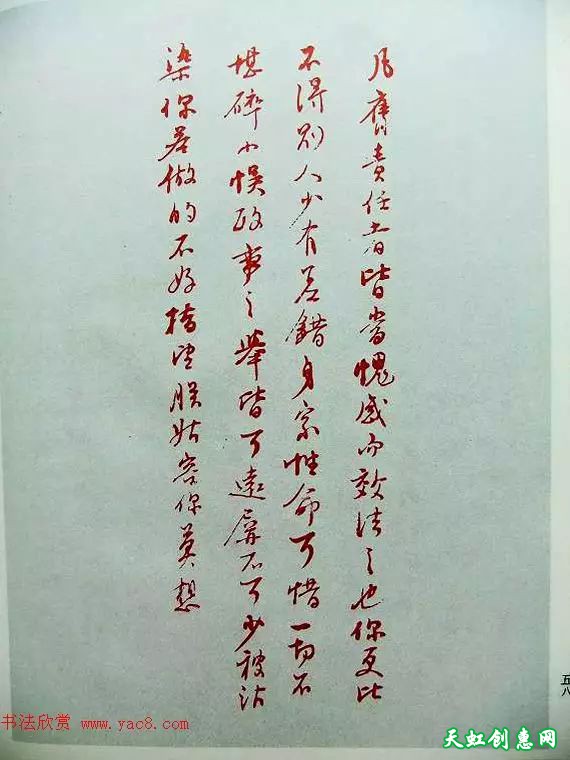 凡膺責任者皆當愧感而效法之也你更比
不得別人少有差錯身家性命可惜一切不
堪碎小悞政事之舉皆可遠屏不可少被沾
染你若做的不好指望朕姑容你莫想
五八
书法欣赏 www.yac8.com
天虹创惠网